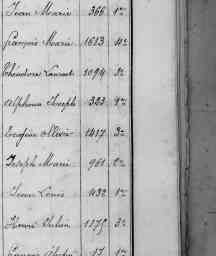 Jean Marie 366 1re
François Marie 1613 4e
Théodore Laurent 1094 3e
Alphonse Joseph 323 1re
Eugène Olive 1417 3e
Joseph Marie 961 2e
Jean Louis 432 1re
Henri Julien 1175 3e
17 1re